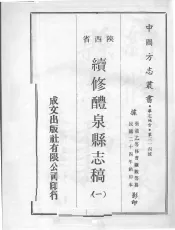 中國方志叢書·華北地方·第三一四號
據
民國二十四年鉛印本
影印
陝西省
續修醴泉縣志稿
(一)
成文出版社有限公司印行